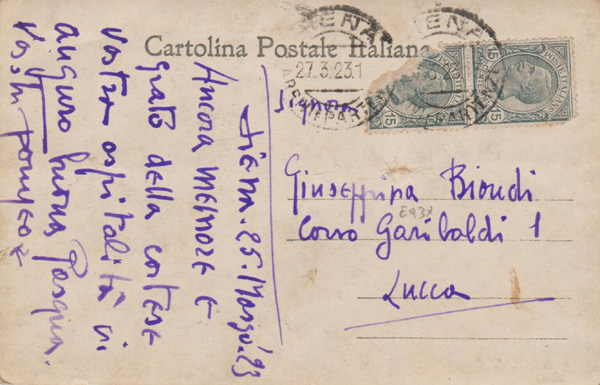 Cartolina Postale Italiana
27.3.23.1
15
15
Siena. 25. Marzo. 23
Ancora memore e
grato della cortese
vostra ospitalità vi
auguro buona Pasqua.
Signora
Giuseppina Biondi
Corso Garibaldi 1
Lucca